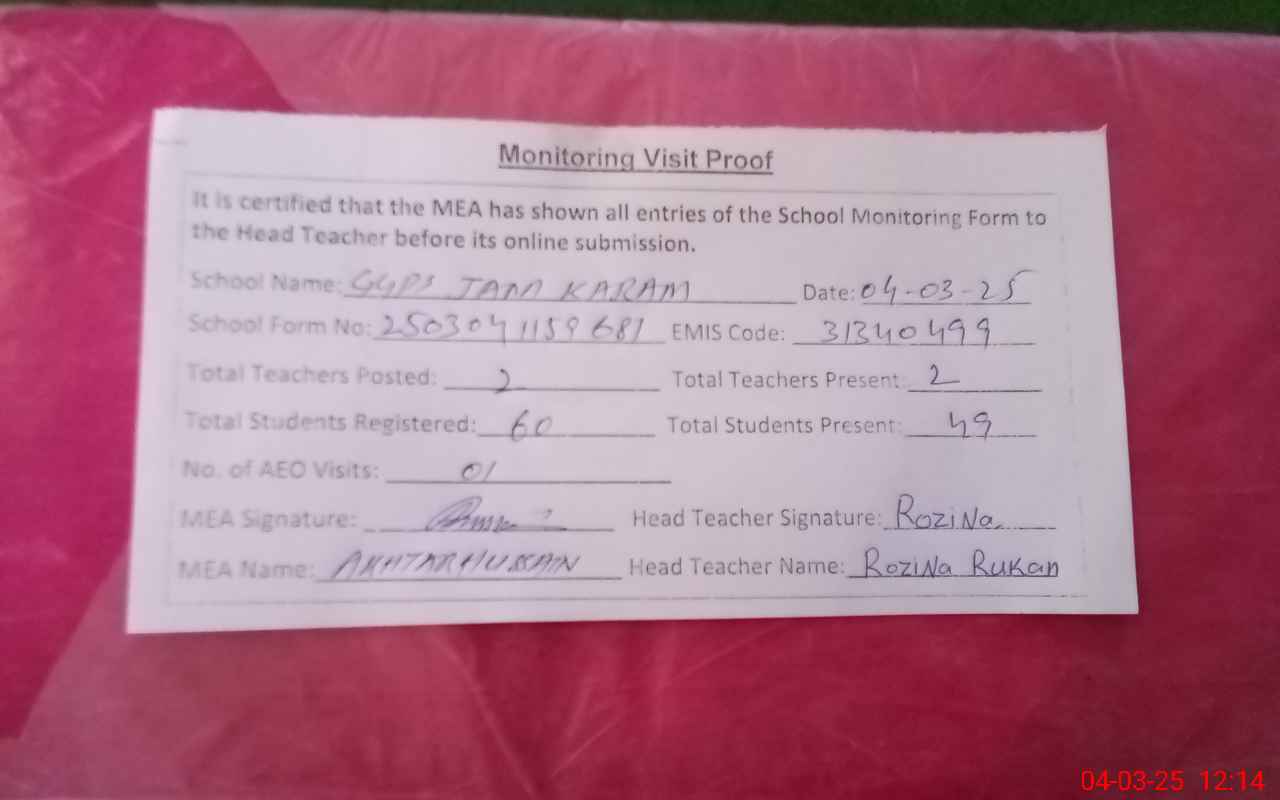 Monitoring Visit Proof
It is certified that the MEA has shown all entries of the School Monitoring Form to
the Head Teacher before its online submission.
School Name: GGPS JAM KARAM Date: 04-03-25
School Form No: 2503041159681 EMIS Code: 31340499
Total Teachers Posted: 2 Total Teachers Present: 2
Total Students Registered: 60 Total Students Present: 49
No. of AEO Visits: 01
MEA Signature: Head Teacher Signature: Rozina
MEA Name: AKHTAR HUSSAIN Head Teacher Name: Rozina Rukan
04-03-25 12:14